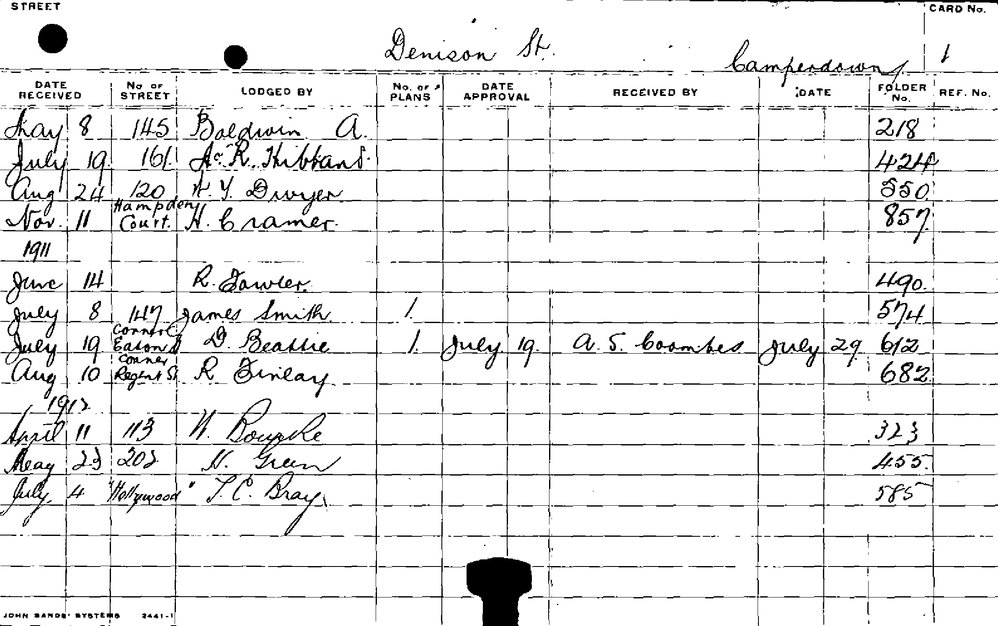 STREET
CARD No.
Denison St.
Camperdown
1
DATE RECEIVED No OF STREET LODGED BY No. OF PLANS DATE APPROVAL RECEIVED BY DATE FOLDER No. REF. No.
May 8 145 Baldwin A. 218
July 19 161 R. Hibband. 424
Aug 24 120 Dwyer. 550
Nov. 11 Hampden Court. H. Cramer. 857
1911
June 14 R. Fowler. 490.
July 8 147 James Smith 1. 574
July 19 Corner Eason St D. Beattie 1. July 19. A. S. Coombes July 29. 612
Aug 10 Corner Regent St R Finlay. 682
1912
April 11 113 W. Bourke 323
May 23 202 H. Green 455.
July 4 "Hollywood" T. C. Bray 585
JOHN SANDS' SYSTEMS 2441-1